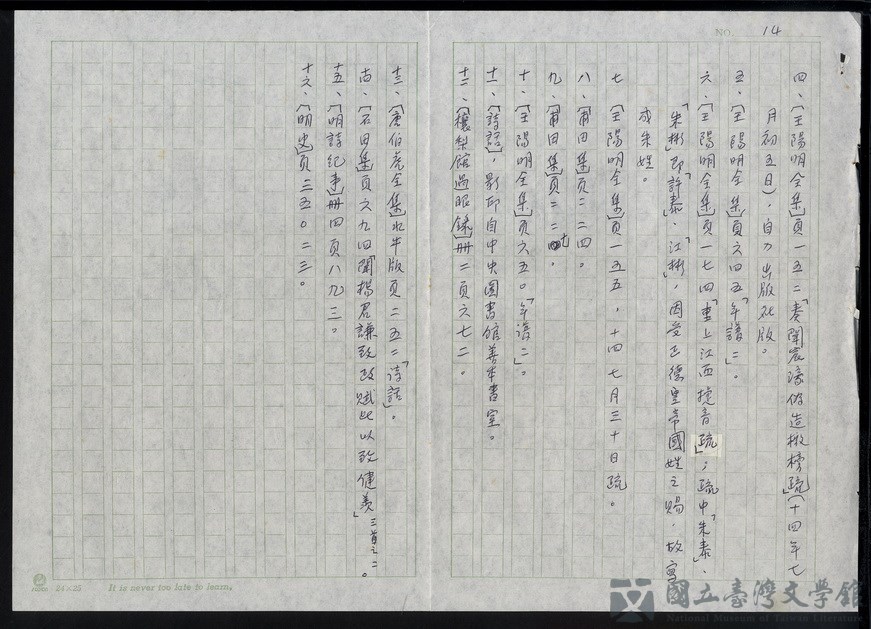 NO. 14
四、〔王陽明全集〕頁一五二「奏聞宸濠偽造檄榜疏」(十四年七
月初五日)，自力出版社版。
五、〔王陽明全集〕頁六四五「年譜二」。
六、〔王陽明全集〕頁一七四「重上江西捷音疏」，疏中「朱泰」、
「朱彬」即「許泰」、「江彬」，因受正德皇帝國姓之賜，故寫
成朱姓。
七、〔王陽明全集〕頁一五五，十四七月三十日疏。
八、〔莆田集〕頁二二四。
九、〔莆田集〕頁二二七。
十、〔王陽明全集〕頁六五〇「年譜二」。
十一、〔詩話〕，影印自中央圖書館善本書室。
十二、〔穰梨館過眼錄〕冊二頁六七二。
十三、〔唐伯虎全集〕水牛版頁二五二「詩話」。
十四、〔石田集〕頁六九四「聞楊君謙致政賦此以致健羨」三首之二。
十五、〔明詩紀事〕冊四頁八九三。
十六、〔明史〕頁三五〇二三。
24×25 It is never too late to learn.
國立臺灣文學館
National Museum of Taiwan Literature